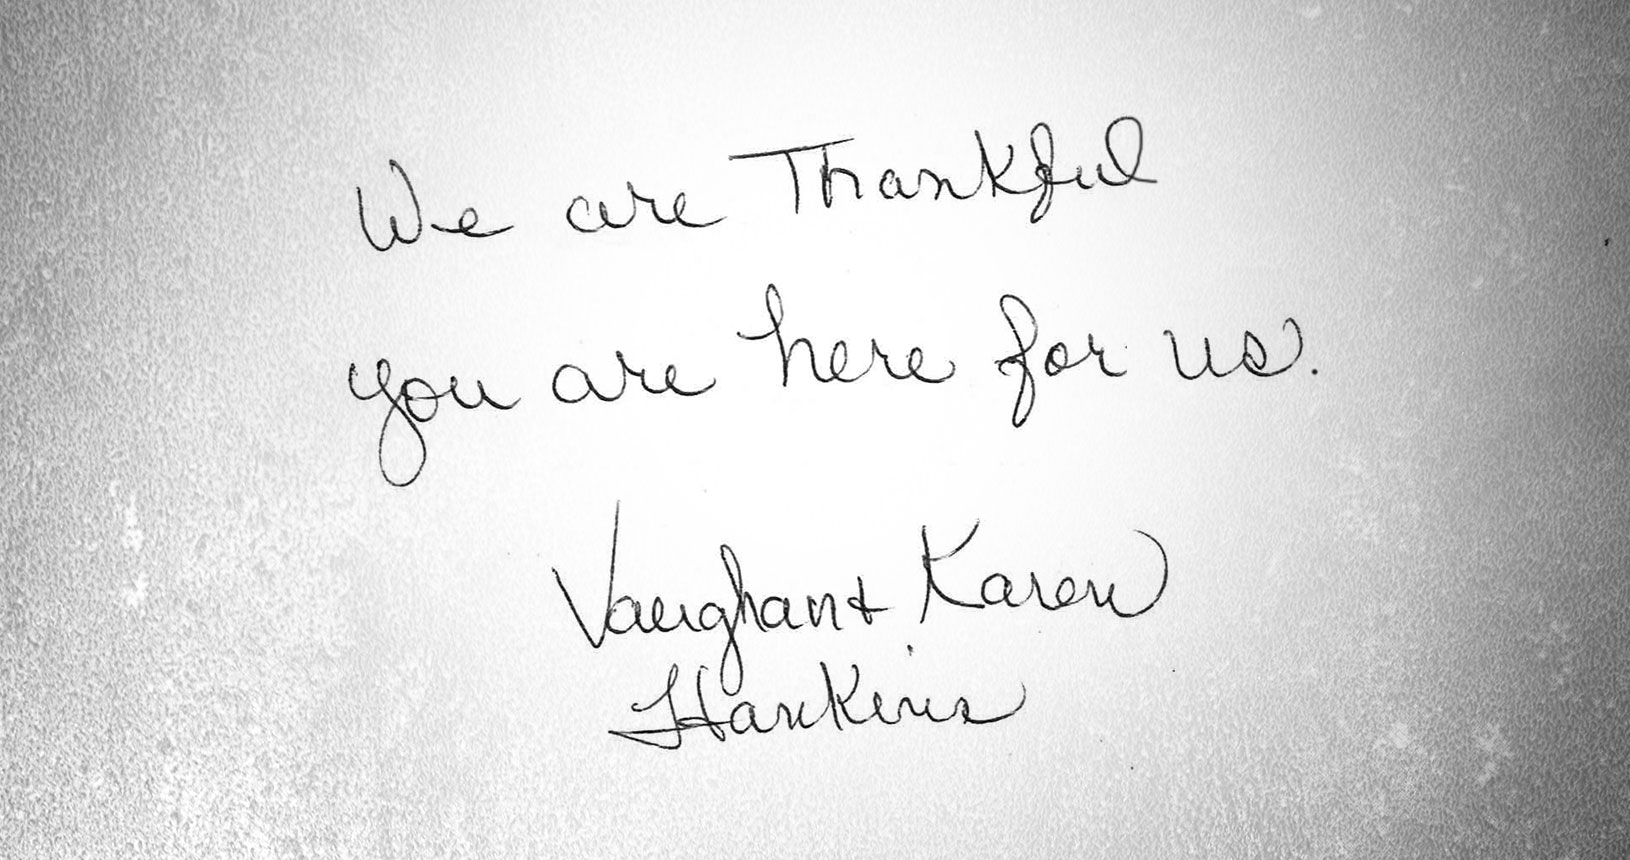 We are Thankful
you are here for us.
Vaughan + Karen
Hankins